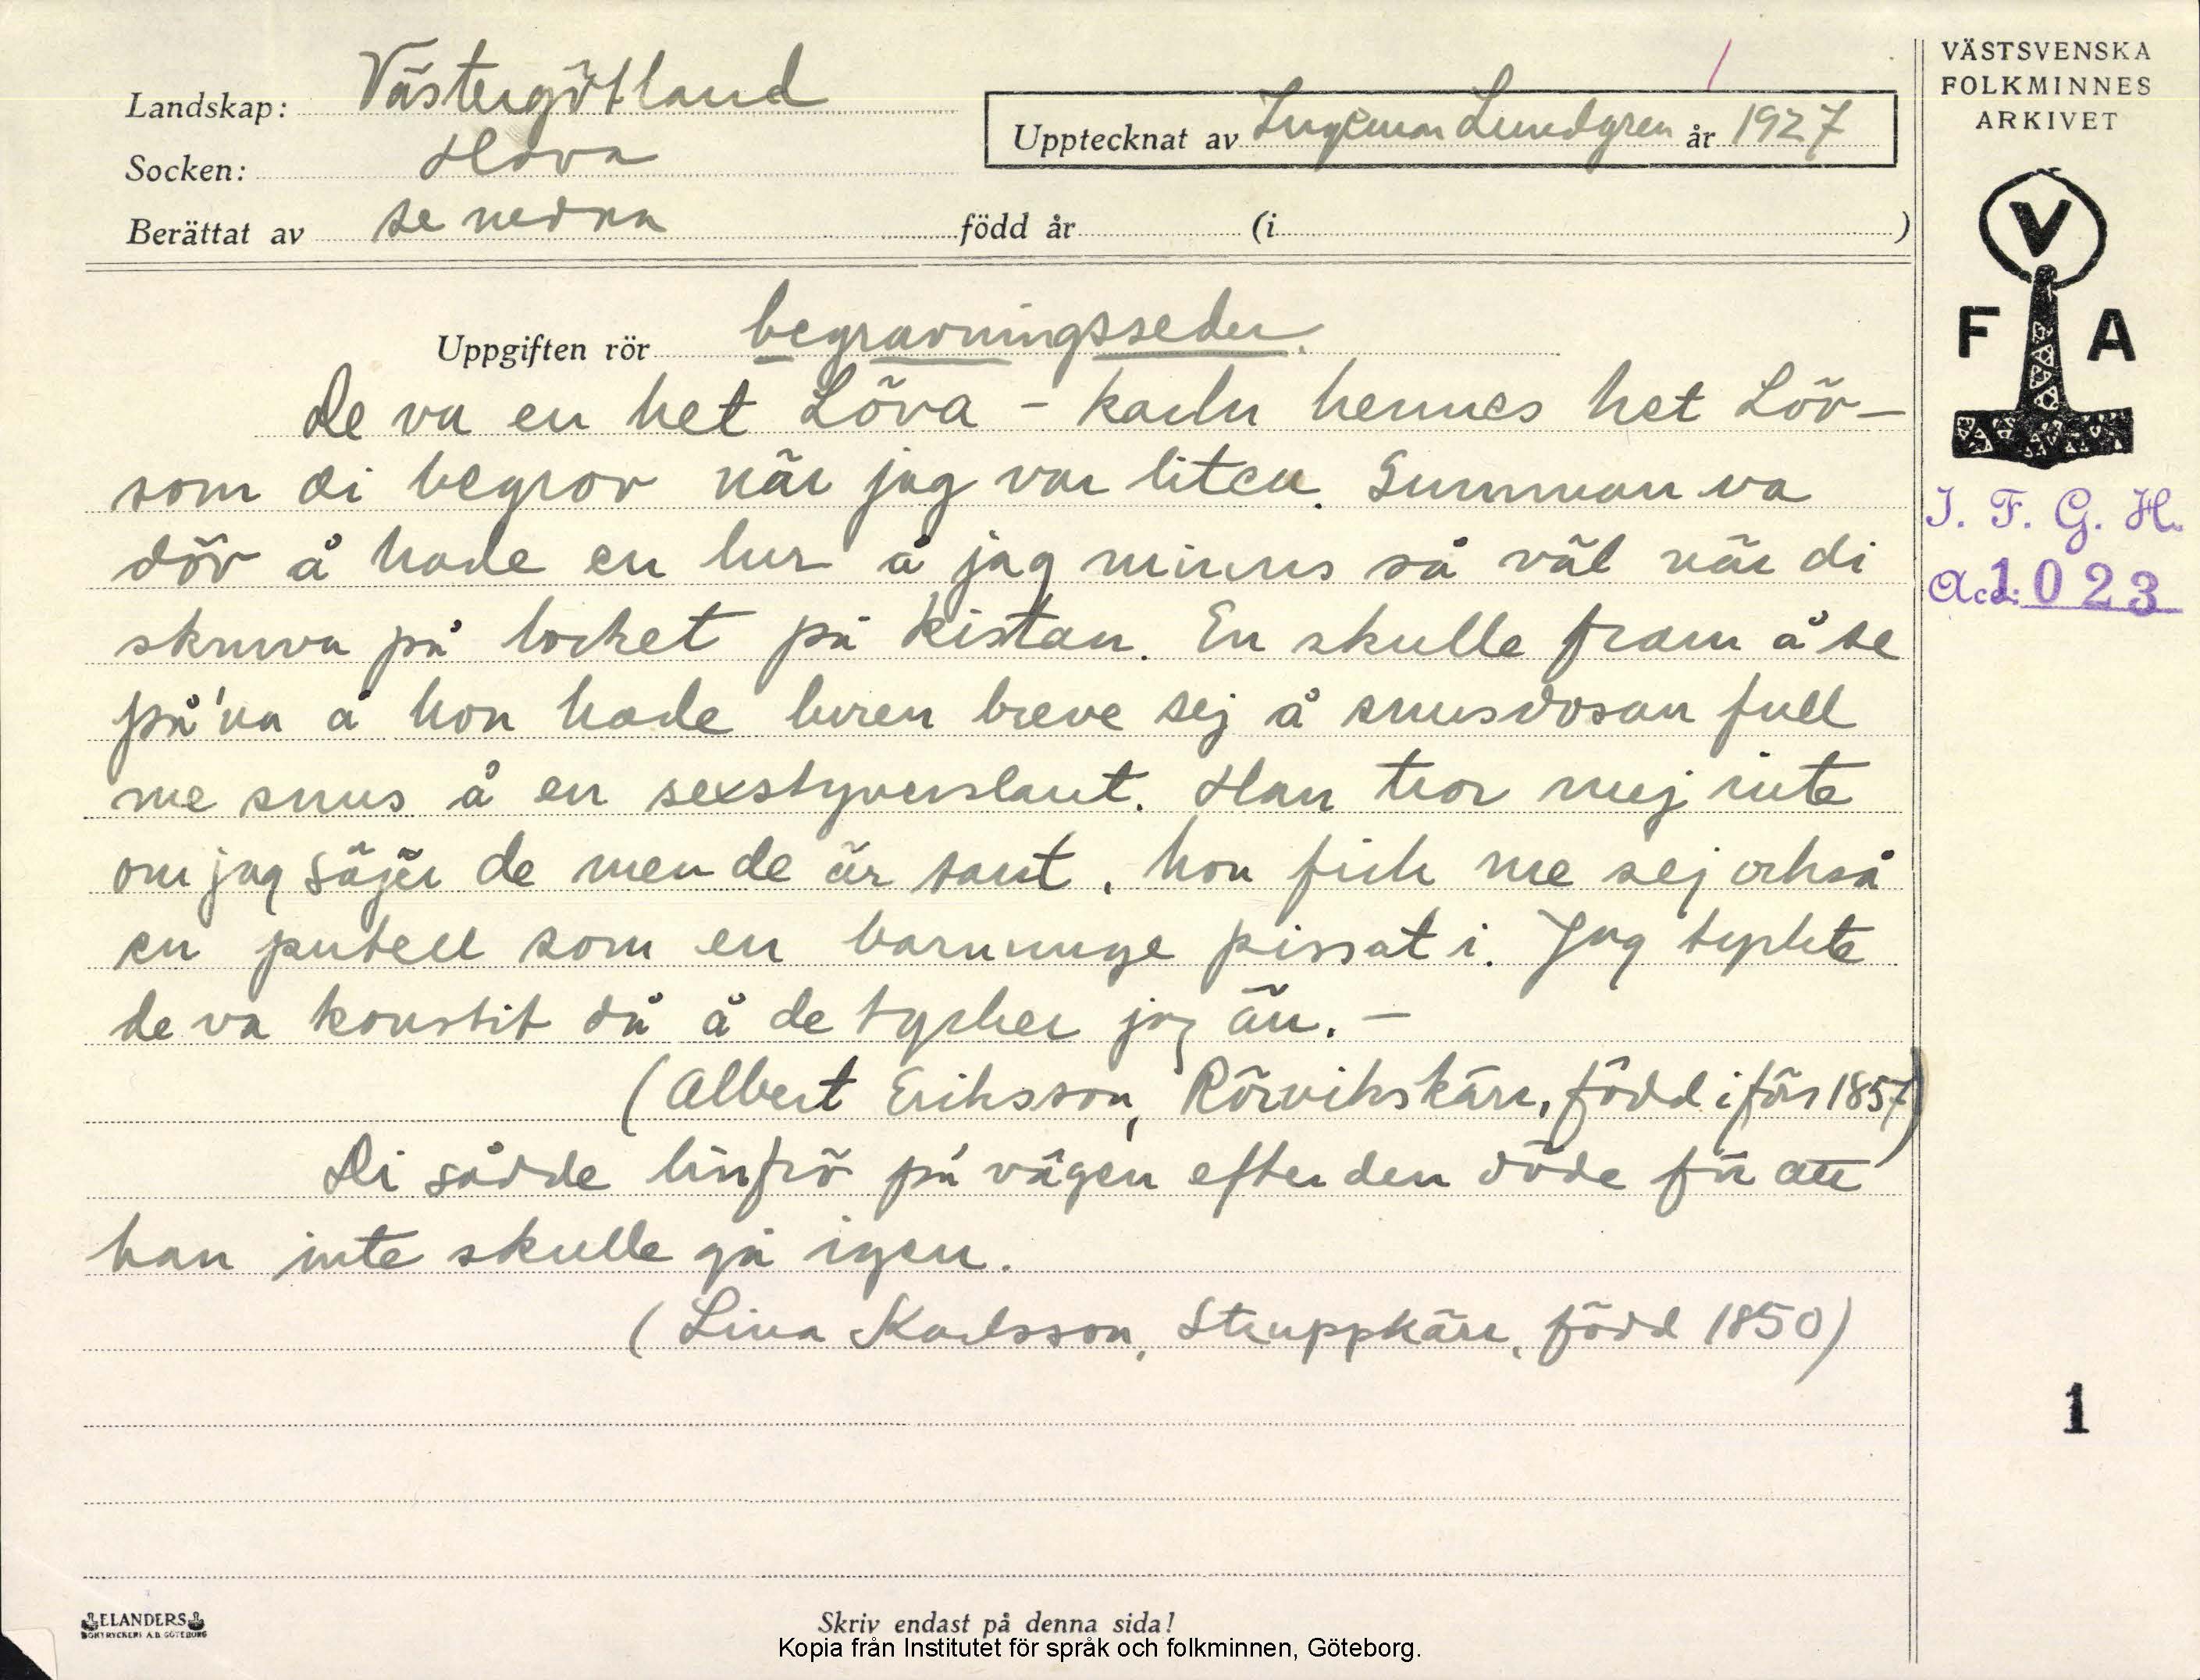 Landskap: Västergötland
Socken: Hova
Berättat av se nedan född år (i )
Upptecknat av Ingemar Lundgren år 1927
VÄSTSVENSKA
FOLKMINNES
ARKIVET
V
F A
I. F. G. H.
Acc: 1023
Uppgiften rör begravningsseder.
De va en het Löva – karln hennes het Löv–
som di begrov när jag var liten. Gumman va
döv å hade en lur å jag minns så väl när di
skruva på locket på kistan. En skulle fram å se
på'na å hon hade luren breve sej å snusdosan full
me snus å en sexstyverslant. Han tror mej inte
om jag säjer de men de är sant, hon fick me sej också
en putell som en barnunge pissat i. Jag tyckte
de va konstit då å de tycker jag än. –
(Albert Eriksson, Rörvikskärr, född iförs 1857)
Di sådde linfrö på vägen efter den döde för att
han inte skulle gå igen.
(Lina Karlsson, Struppkärr, född 1850)
1
ELANDERS
BOKTRYCKERI A.B. GÖTEBORG
Skriv endast på denna sida!
Kopia från Institutet för språk och folkminnen, Göteborg.